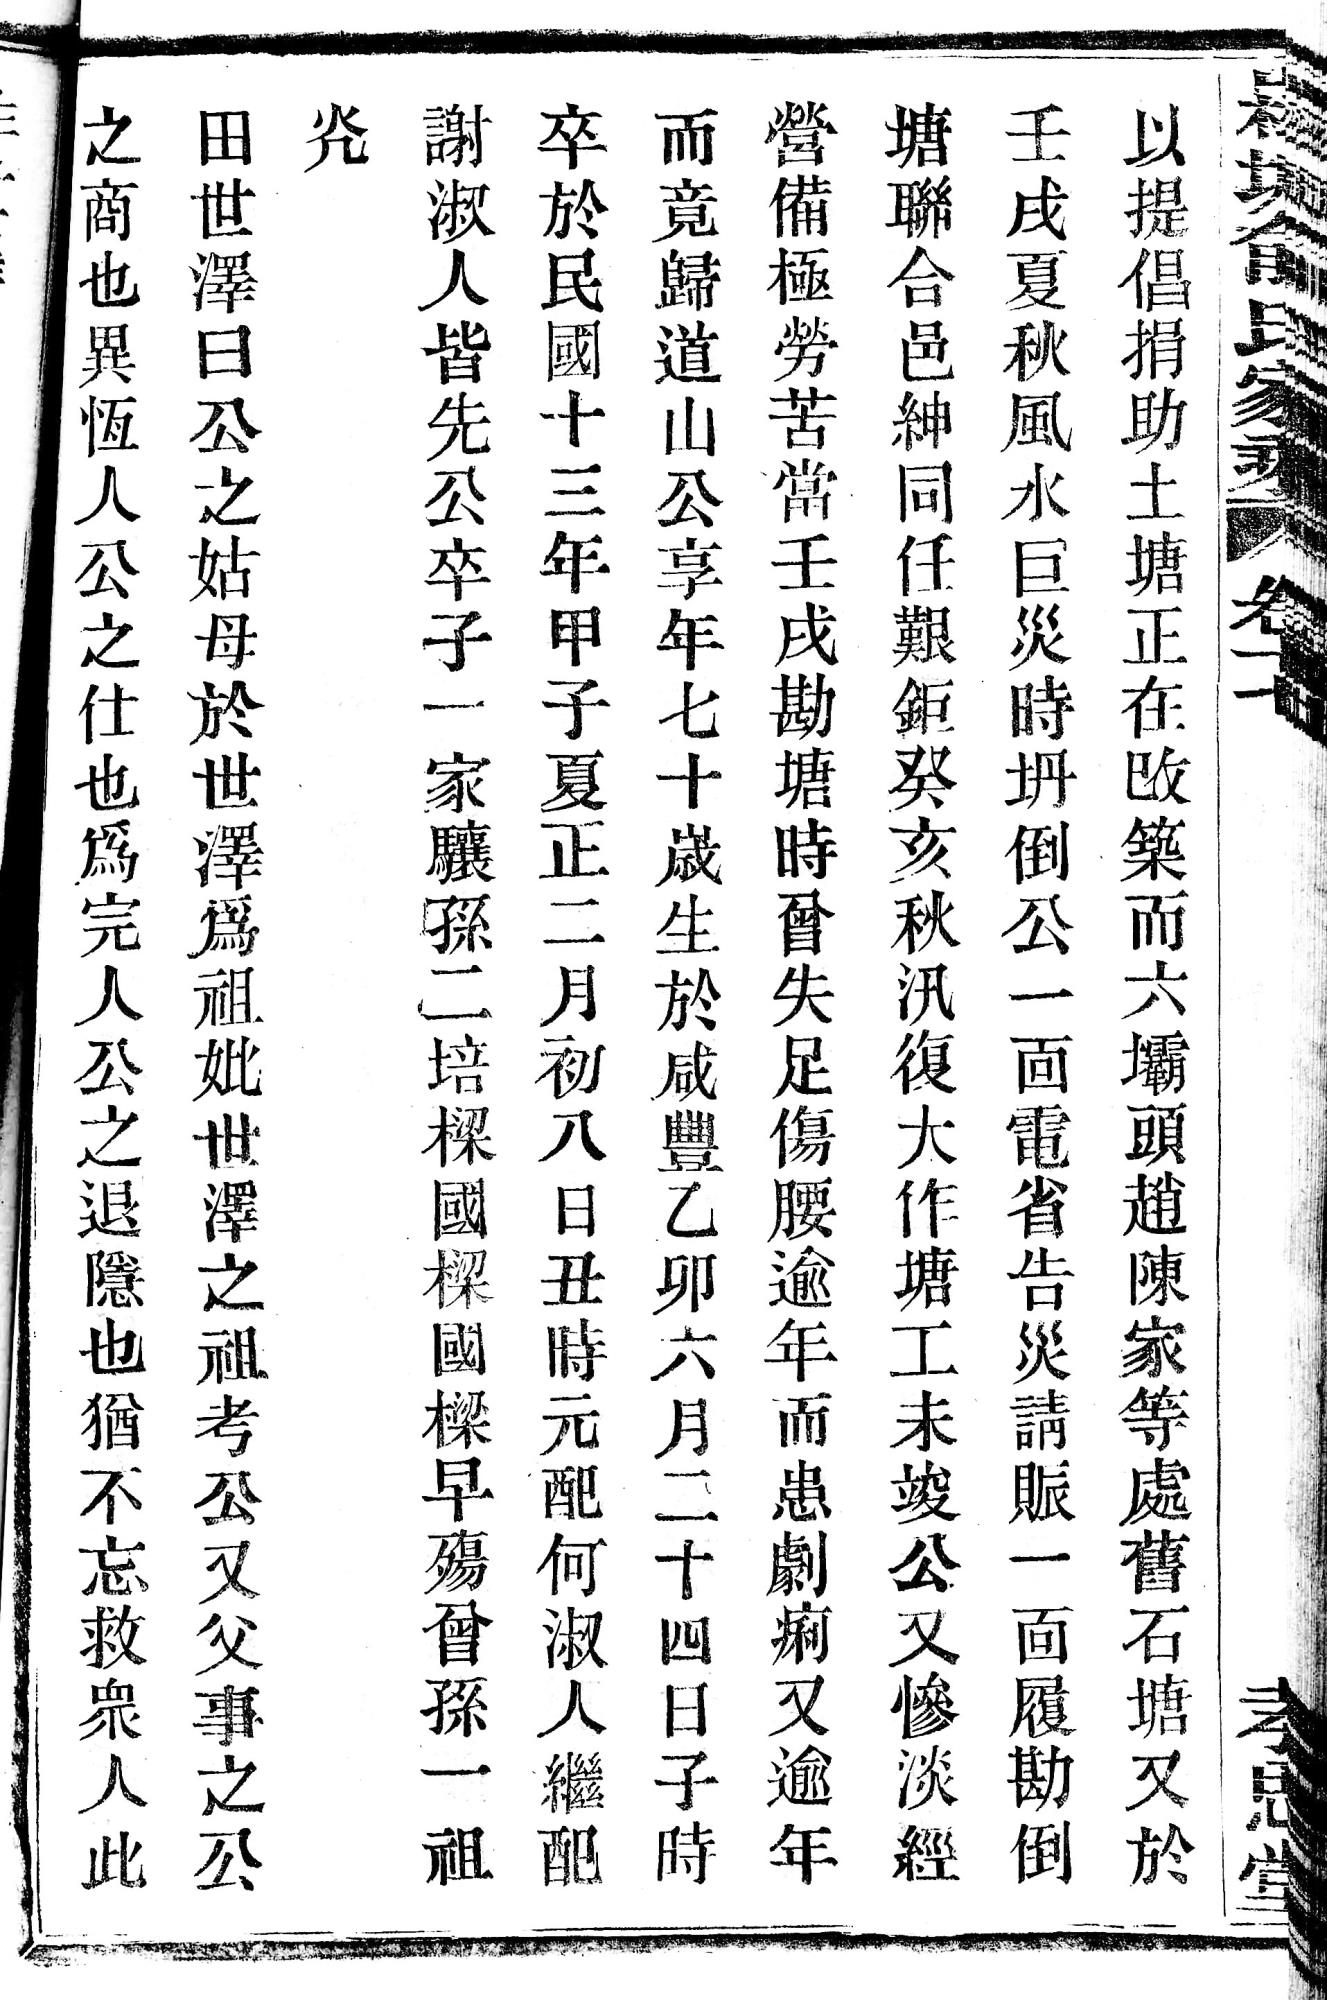 以提倡捐助土塘正在改築而六壩頭趙陳家等處舊石塘又於
壬戌夏秋風水巨災時坍倒公一面電省告災請賑一面履勘倒
塘聯合邑紳同任艱鉅癸亥秋汛復大作塘工未竣公又慘淡經
營備極勞苦當壬戌勘塘時曾失足傷腰逾年而患劇痢又逾年
而竟歸道山公享年七十歲生於咸豐乙卯六月二十四日子時
卒於民國十三年甲子夏正二月初八日丑時元配何淑人繼配
謝淑人皆先公卒子一家驤孫二培樑國樑國樑早殤曾孫一祖
光
田世澤曰公之姑母於世澤爲祖妣世澤之祖考公又父事之公
之商也異恆人公之仕也爲完人公之退隱也猶不忘救衆人此
塘俞氏家乘 卷十 孝思堂